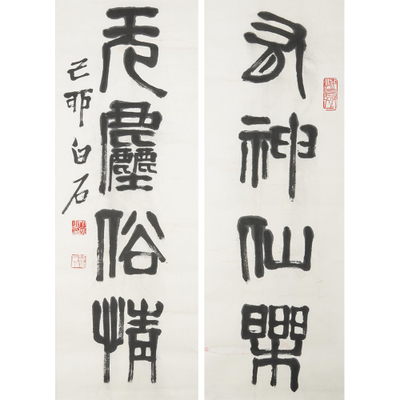 有神仙樂
无塵俗情
己卯白石